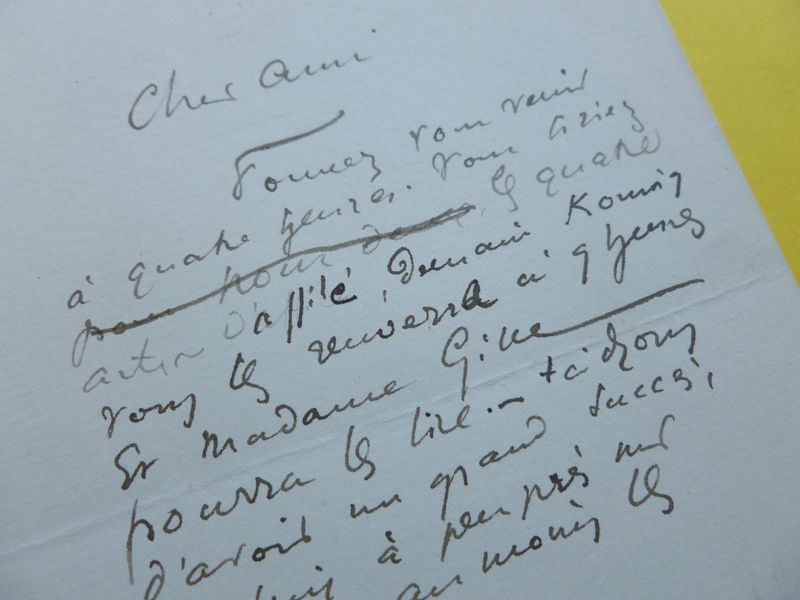 Cher ami
Pouvez vous venir
à quatre heures. Vous liriez
pour nous deux les quatre
actes d'affilé, demain Koning
vous les renverra à 9 heures
Et Madame
pourra les lire. – tâchons
d'avoir un grand succès,
à peu près sûr
au moins les